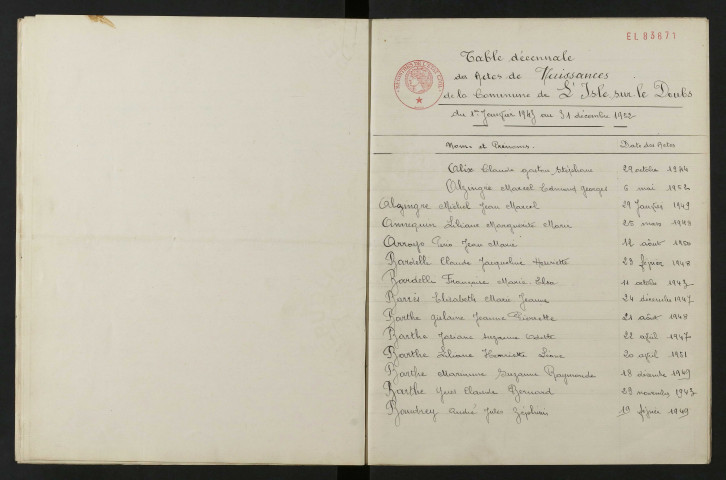 EL 83871
Table décennale
des Actes de Naissances
de la Commune de L'Isle sur le Doubs
du 1er Janvier 1943 au 31 décembre 1952
Noms et Prénoms. Date des Actes
Alix Claude Stéphane 29 octobre 1944
Alzingre Marcel Edmond Georges 6 mai 1952
Alzingre Michel Jean Marcel 29 Janvier 1949
Liliane Marguerite Marie 25 mars 1943
Arroyo Jean Marie 12 août 1950
Bardelli Claude Jacqueline Henriette 23 février 1948
Bardelli Françoise Marie Elsa 11 octobre 1943
Barris Elisabeth Marie Jeanne 24 décembre 1947
Barthe Jeanne Pierrette 21 août 1948
Barthe Josiane Suzanne Odette 22 avril 1947
Barthe Liliane Henriette 20 avril 1951
Barthe Marianne Suzanne Raymonde 18 décembre 1949
Barthe Yves Claude Bernard 29 novembre 1943
Baudrey André Jules 19 février 1949